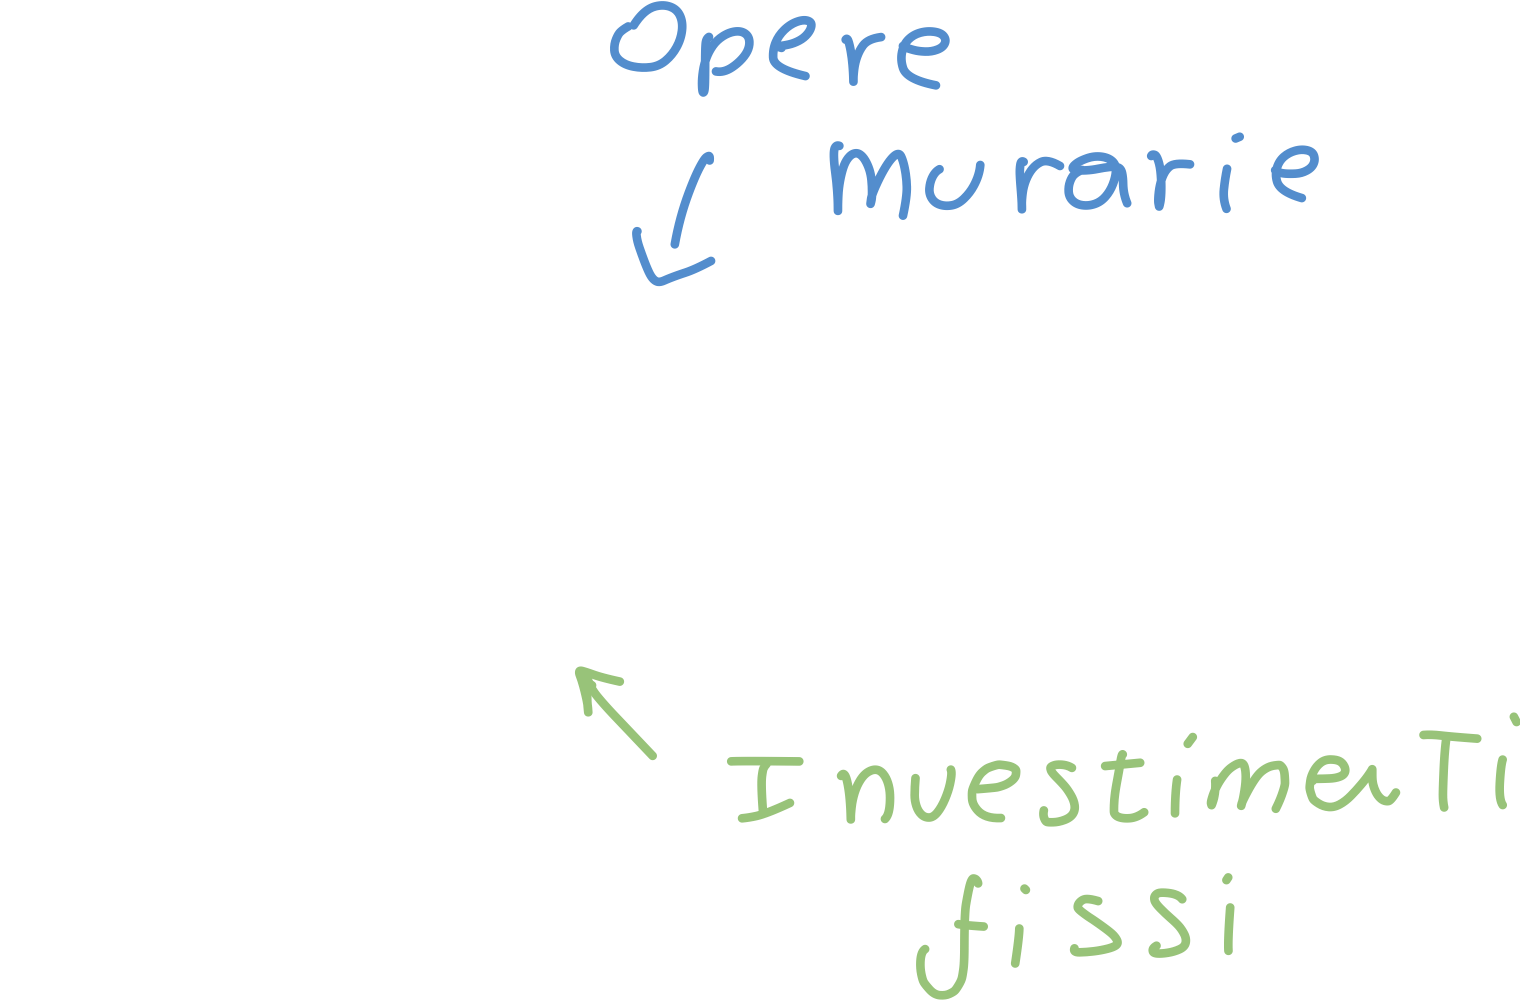 Opere
murarie
Investimenti
fissi